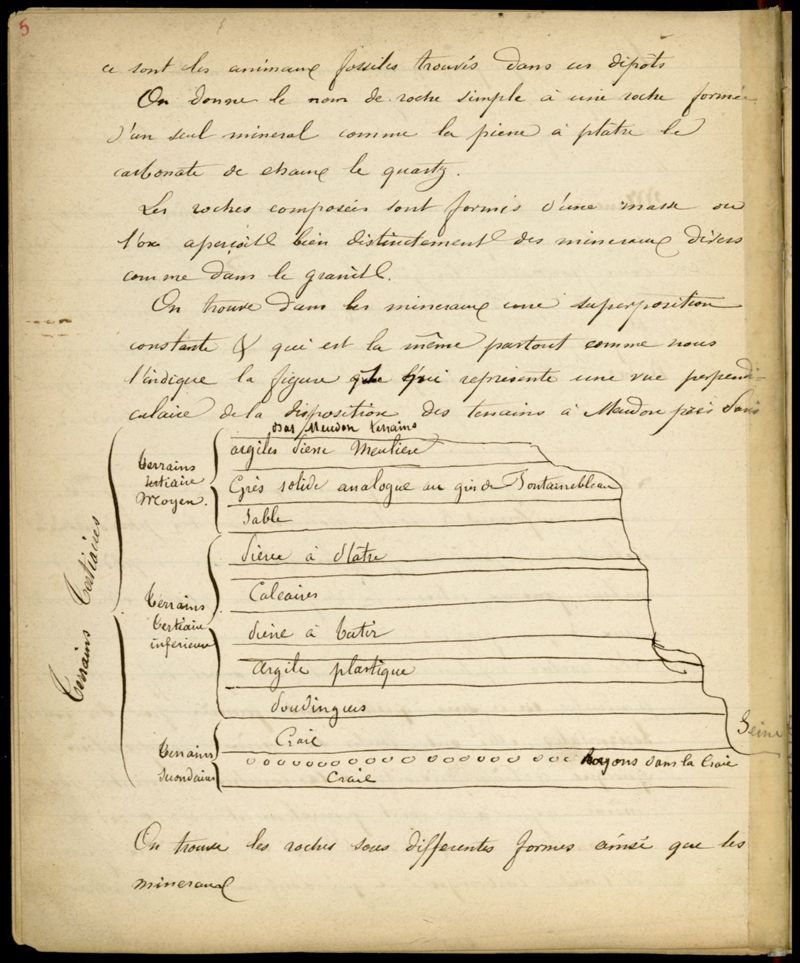 5
ce sont les animaux fossiles trouvés dans ces dépots
On donne le nom de roche simple à une roche formée
d'un seul mineral comme la pierre à platre le
carbonate de chaux le quartz.
Les roches composées sont formés d'une masse ou
l'on aperçoit bien distinctement des mineraux divers
comme dans le granit.
On trouve dans les mineraux une superposition
constante & qui est la même partout comme nous
l'indique la figure qui représente une vue perpendi-
culaire de la disposition des terrains à Meudon près Paris
Bas Meudon terrains
Terrains Tertiaires
Terrains
tertiaire
Moyen.
argiles Pierre Meuliere
Grès solide analogue au grès de Fontainebleau
Sable
Terrains
Tertiaire
inférieur
Pierre à Platre
Calcaires
Pierre à batir
Argile plastique
Poudingues
Terrains
Secondaire
Craie
Rayons dans la Craie
Craie
Seine
On trouve les roches sous differentes formes ainsi que les
mineraux